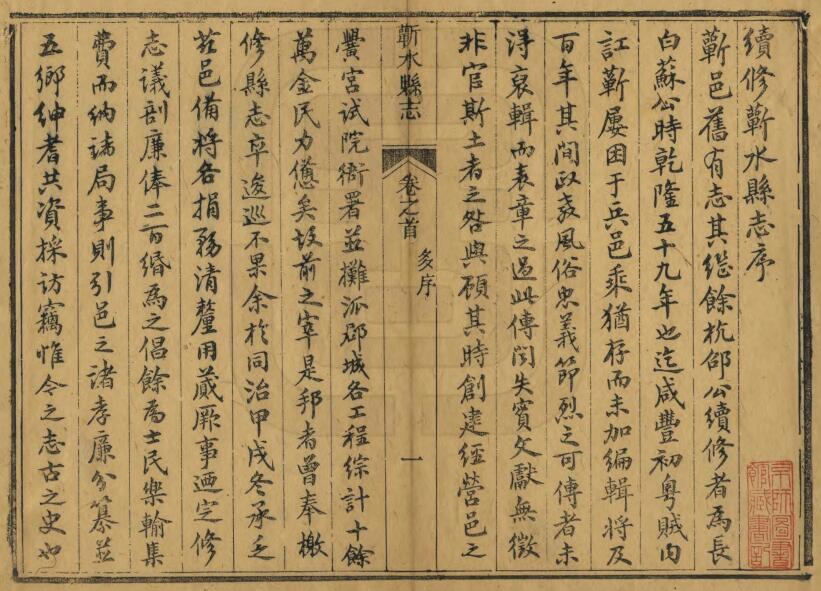 續修蘄水縣志序
蘄邑舊有志其繼餘杭邵公續修者爲長
白蘇公時乾隆五十九年也迄咸豐初粵賊內
訌蘄屢困于兵邑乘猶存而未加編輯將及
百年其間政教風俗忠義節烈之可傳者未
得裒輯而表章之過此傳聞失實文獻無徵
非官斯土者之咎與顧其時創建經營邑之
蘄水縣志
卷之首
多序
一
黌宮試院衙署並攤派郡城各工程綜計十餘
萬金民力憊矣故前之宰是邦者曾奉檄
修縣志卒逡巡不果余於同治甲戌冬承乏
茲邑備將各捐務清釐用蕆厥事迺定修
志議剖廉俸二百緡爲之倡餘爲士民樂輸集
費而納諸局事則引邑之諸孝廉分纂並
五鄉紳耆共資採訪竊惟今之志古之史也
京師圖書館藏書記